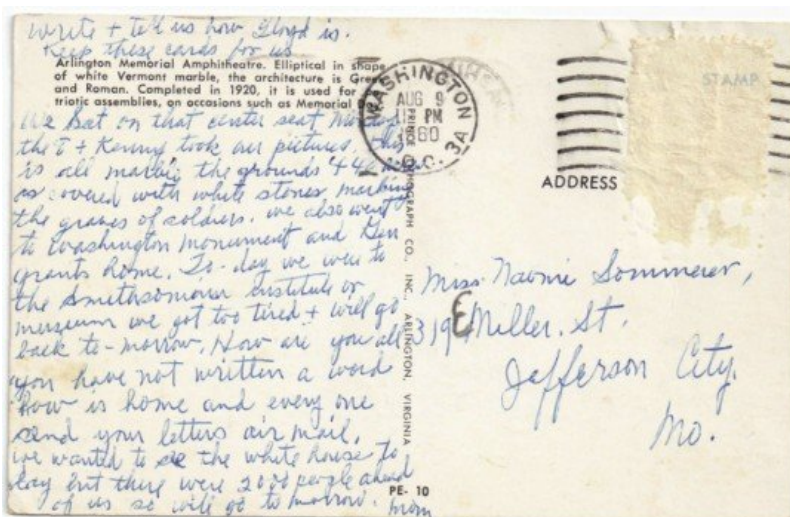 Write + tell us how Floyd is.
Keep these cards for us
Arlington Memorial Amphitheatre. Elliptical in shape
of white Vermont marble, the architecture is Greek
and Roman. Completed in 1920, it is used for
triotic assemblies, on occasions such as Memorial Day
We sat on that center seat
the + Kenny took our pictures, this
is all marble the grounds
as covered with white stones marking
the graves of soldiers. we also went
to Washington Monument and Gen
grants home. To-day we went to
the Smithsomonian Institute or
museum we got too tired + will go
back to-morrow. How are you all
you have not written a word
how is home and every one
send your letters air mail.
we wanted to see the white house to
day but there were 2000 people ahead
of us so will go to morrow. Mom
WASHINGTON
AUG 9
PM
1960
D.C. 3A
PRINCE LITHOGRAPH CO., INC. ARLINGTON, VIRGINIA
PE- 10
STAMP
ADDRESS
Miss. Naomi Sommerer,
319 E Miller. St.
Jefferson City.
Mo.